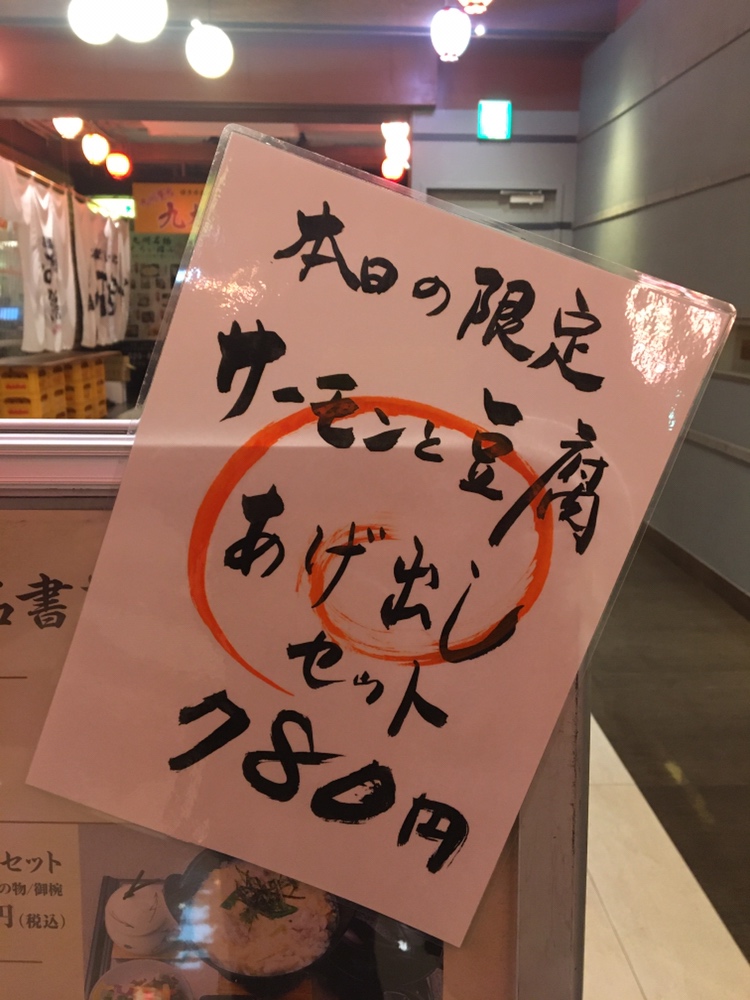 本日の限定
サーモンと豆腐
あげ出し
セット
780円
書
セット
の物/御椀
円(税込)
九